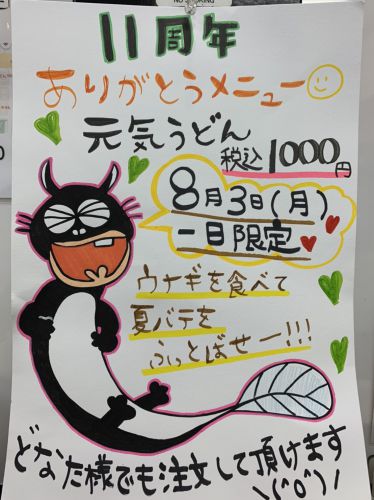 NO SMOKING
11周年
ありがとうメニュー
元気うどん
税込1000円
8月3日(月)
一日限定
ウナギを食べて
夏バテを
ふっとばせー!!!
どなた様でも注文して頂けます
\(^o^)/